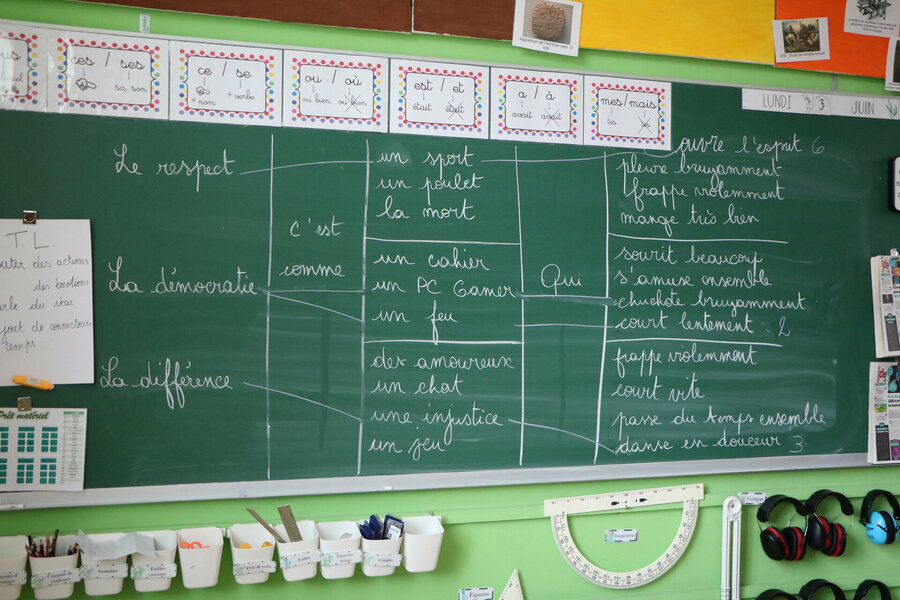 Apparition de l'écriture vers -3 100
ces / ses
sa, son
ce / se
+ nom
+ verbe
ou / où
ou bien
ou bien
est / et
était
était
a / à
avait
avait
mes/mais
tes
LUNDI 3 JUIN
Le respect
La démocratie
La différence
c'est
comme
un sport
un poulet
la mort
un cahier
un PC Gamer
un feu
des amoureux
un chat
une injustice
un jeu
Qui
ouvre l'esprit 6
pleure bruyamment
frappe violemment
mange très bien
sourit beaucoup
s'amuse ensemble
chuchote bruyamment
court lentement 2
frappe violemment
court vite
passe du temps ensemble
danse en douceur 3
T.L.
outer des actions
des émotions
rle du veau
jout de connecteur
temps
Prêt matériel